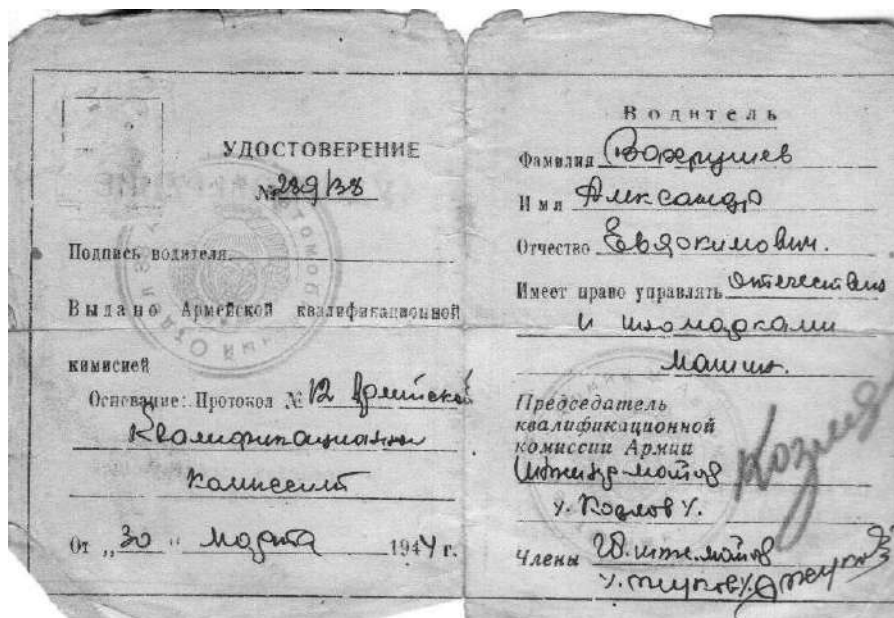 УДОСТОВЕРЕНИЕ
№ 289/38
Подпись водителя
Выдано Армейской квалификационной
кимисией
Основание: Протокол № 12 Армейской
Квалификационной
комиссии
От „30" марта 1944 г.
Водитель
Фамилия Вахрушев
Имя Александр
Отчество Евдокимович.
Имеет право управлять
и марками
машин.
Председатель
квалификационной
комиссии Армии
Инженер-майор
/. Козлов /.
Члены майор